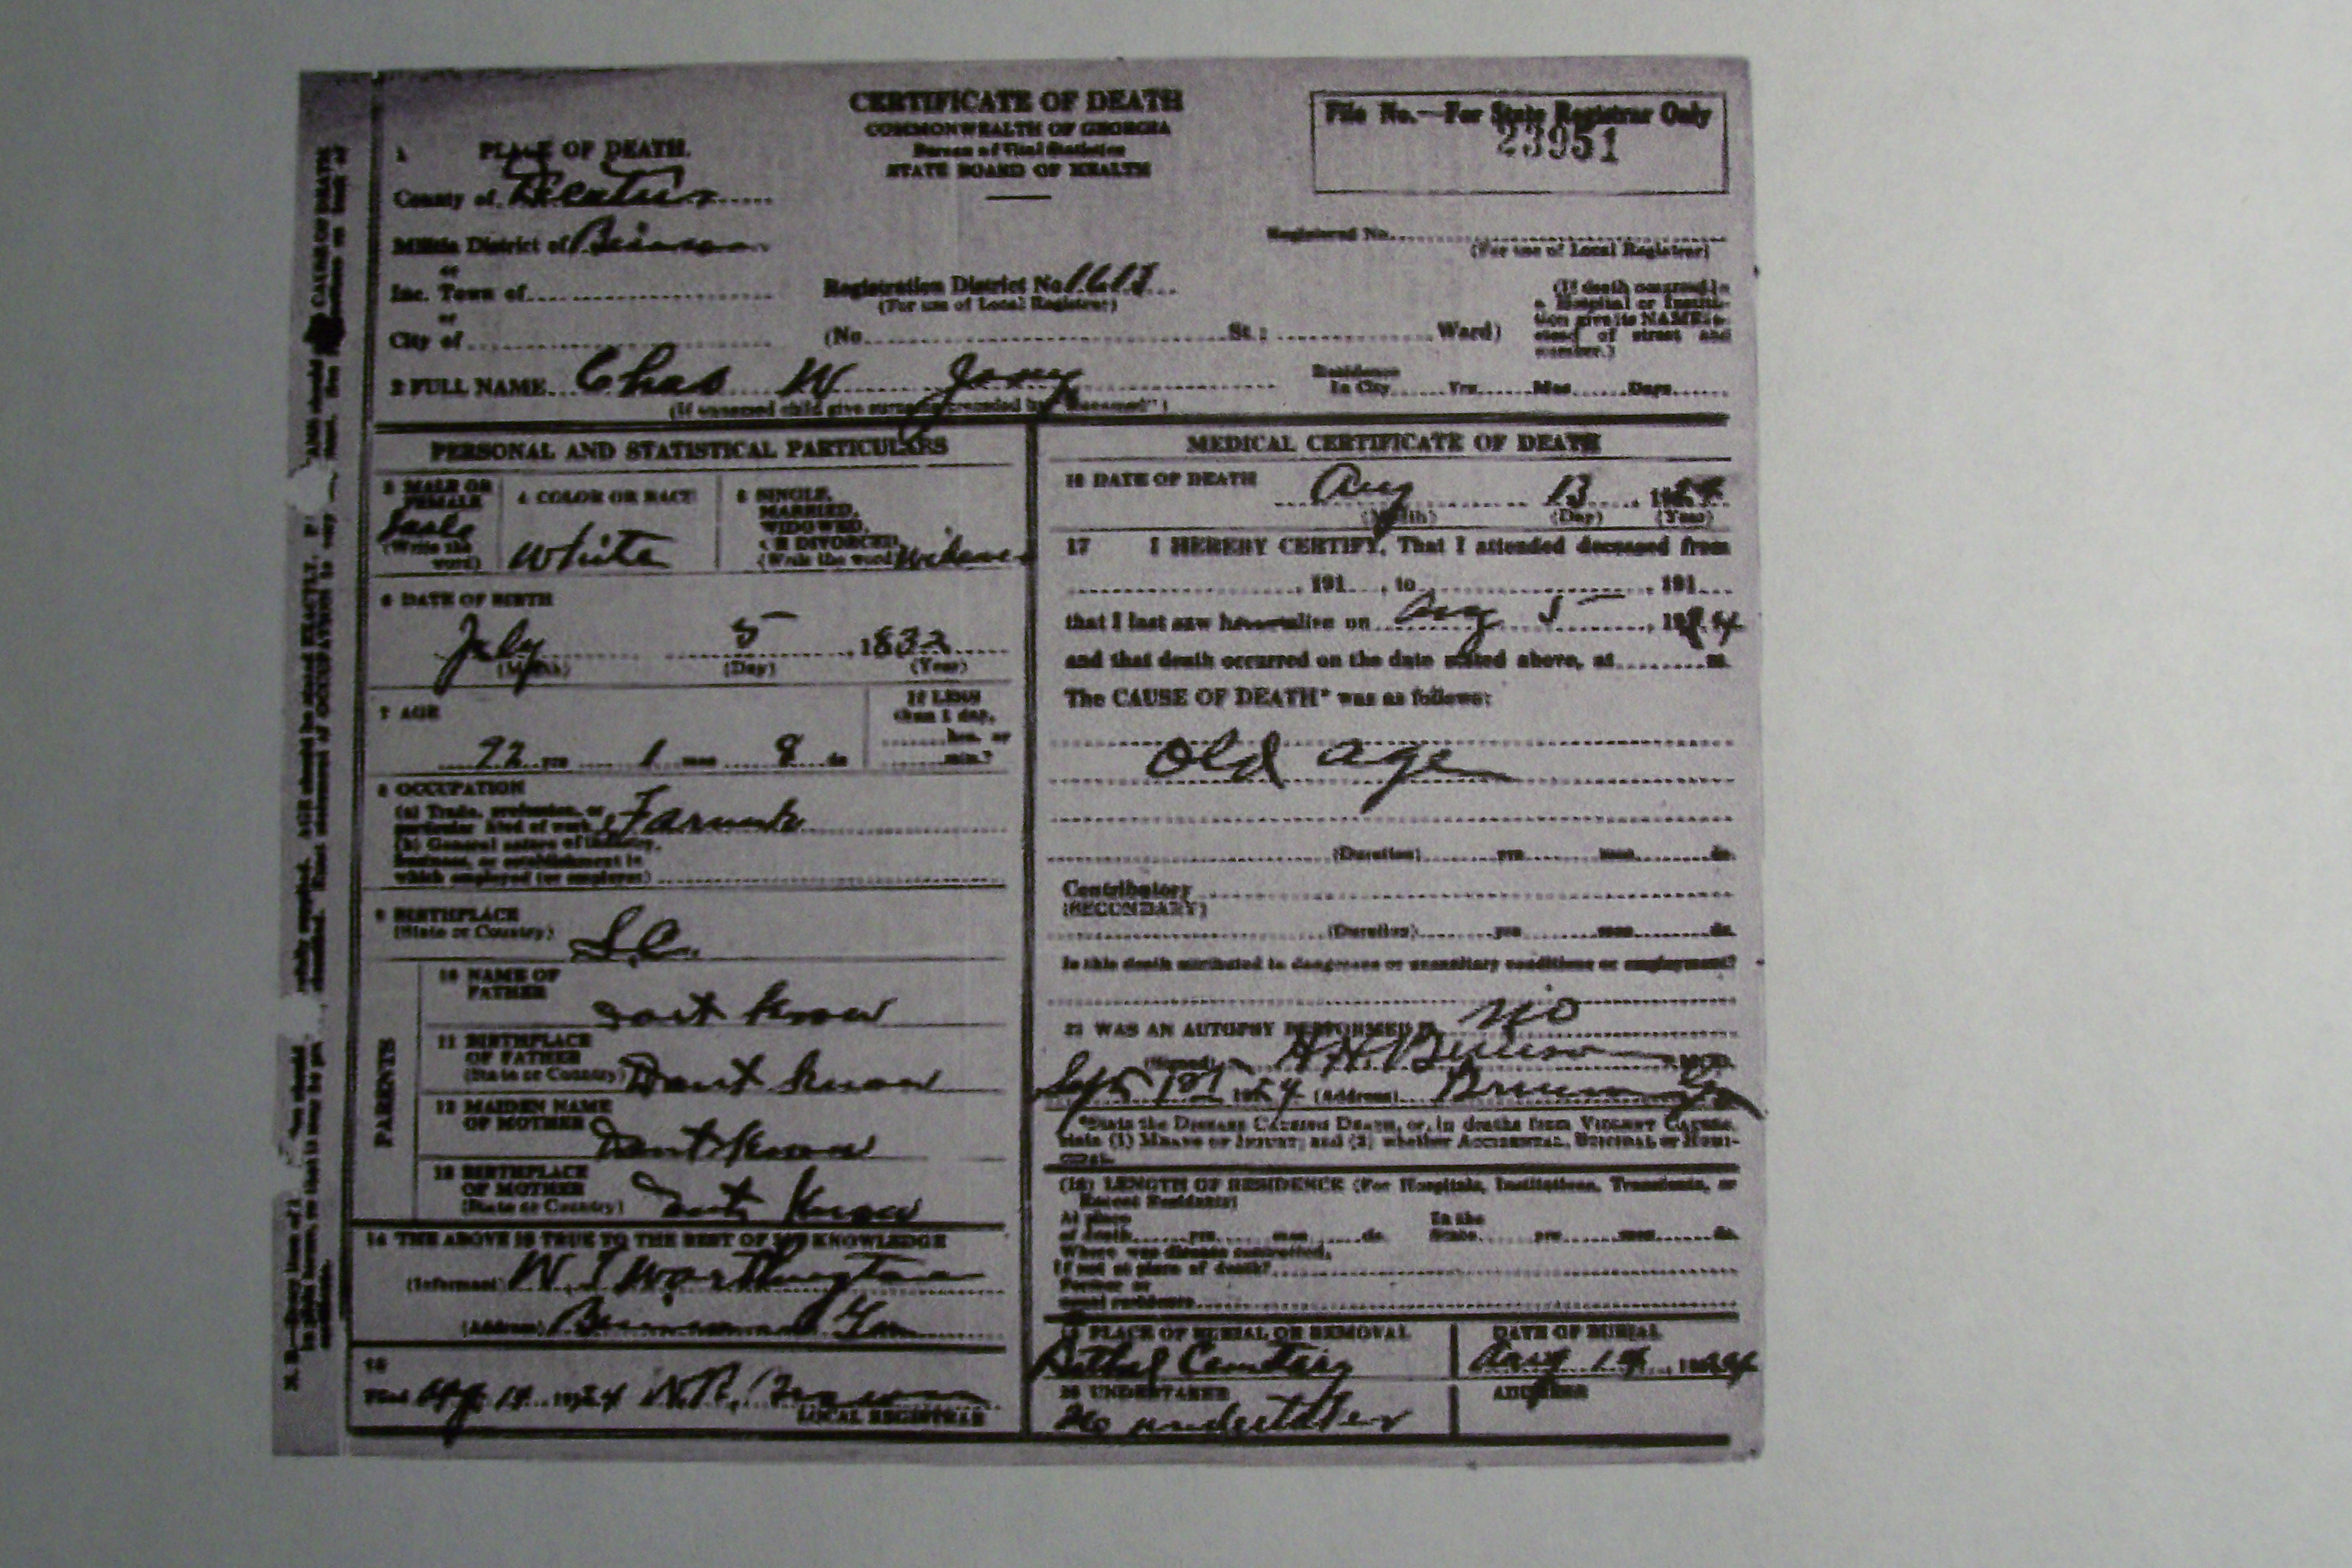 CERTIFICATE OF DEATH
COMMONWEALTH OF GEORGIA
Bureau of Vital Statistics
STATE BOARD OF HEALTH
File No.—For State Registrar Only
23951
1 PLACE OF DEATH.
County of Decatur
Militia District of
or
Inc. Town of
or
City of
Registration District No.
(For use of Local Registrar)
(No. St.; Ward)
Registered No.
(For use of Local Registrar)
(If death occurred in
a Hospital or Institu-
tion give its NAME in-
stead of street and
number.)
2 FULL NAME Chas W
Residence
In City Yrs Mos Days
PERSONAL AND STATISTICAL PARTICULARS
3 MALE OR
FEMALE
(Write the
word)
4 COLOR OR RACE
White
5 SINGLE,
MARRIED,
WIDOWED,
OR DIVORCED
(Write the word)
6 DATE OF BIRTH
July 5, 1832
(Month) (Day) (Year)
7 AGE
92 yrs 1 mos 8 ds
If LESS
than 1 day,
hrs. or
min.?
8 OCCUPATION
(a) Trade, profession, or
particular kind of work
(b) General nature of industry,
business, or establishment in
which employed (or employer)
9 BIRTHPLACE
(State or Country) S.C.
PARENTS
10 NAME OF
FATHER
dont Know
11 BIRTHPLACE
OF FATHER
(State or Country) Dont Know
12 MAIDEN NAME
OF MOTHER
Dont Know
13 BIRTHPLACE
OF MOTHER
(State or Country) Dont Know
14 THE ABOVE IS TRUE TO THE BEST OF MY KNOWLEDGE
(Informant) W. J Worthington
(Address)
15
Filed 1924
LOCAL REGISTRAR
MEDICAL CERTIFICATE OF DEATH
16 DATE OF DEATH Aug 13, 1924
(Month) (Day) (Year)
17 I HEREBY CERTIFY, That I attended deceased from
, 191 , to , 191
that I last saw h alive on Aug 5, 1924
and that death occurred on the date stated above, at m.
The CAUSE OF DEATH* was as follows:
Old age
(Duration) yrs mos ds.
Contributory
(SECONDARY)
(Duration) yrs mos ds.
Is this death attributed to dangerous or unsanitary conditions or employment?
WAS AN AUTOPSY PERFORMED no
(Signed)
1924 (Address)
*State the DISEASE CAUSING DEATH, or, in deaths from VIOLENT CAUSES,
state (1) MEANS OF INJURY; and (2) whether ACCIDENTAL, SUICIDAL or HOMI-
CIDAL.
(18) LENGTH OF RESIDENCE (For Hospitals, Institutions, Transients, or
Recent Residents)
At place
of death yrs mos ds.
In the
State yrs mos ds.
Where was disease contracted,
If not at place of death?
Former or
usual residence
19 PLACE OF BURIAL OR REMOVAL
Bethel Cemetery
DATE OF BURIAL
Aug 14, 1924
20 UNDERTAKER
No undertaker
ADDRESS